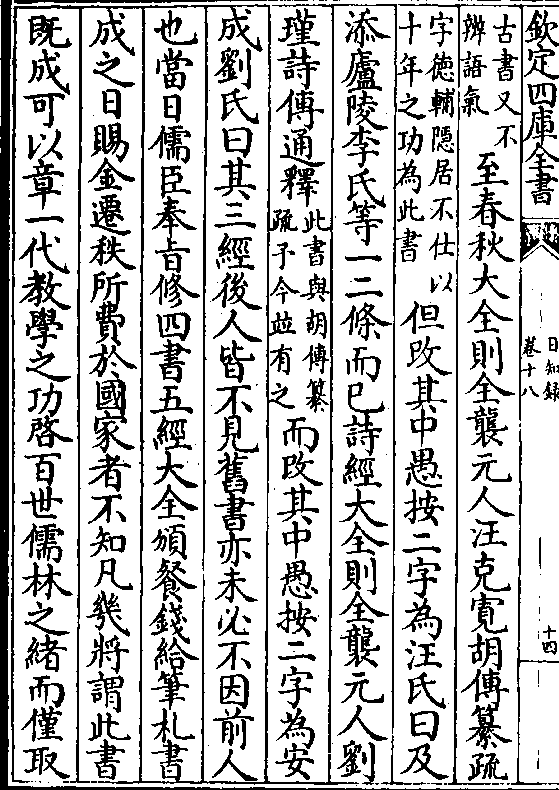 欽定四庫全書
日知錄
卷十八
十四
古書又不
辨語氣
至春秋大全則全襲元人汪克寛胡傳纂疏
字徳輔隠居不仕以
十年之功為此書
但改其中愚按二字為汪氏曰及
添廬陵李氏等一二條而已詩經大全則全襲元人劉
瑾詩傳通釋
此書與胡傳纂
疏予今並有之
而改其中愚按二字為安
成劉氏曰其三經後人皆不見舊書亦未必不因前人
也當日儒臣奉旨修四書五經大全頒餐錢給筆札書
成之日賜金遷秩所費於國家者不知凡幾將謂此書
既成可以章一代教學之功啓百世儒林之緒而僅取